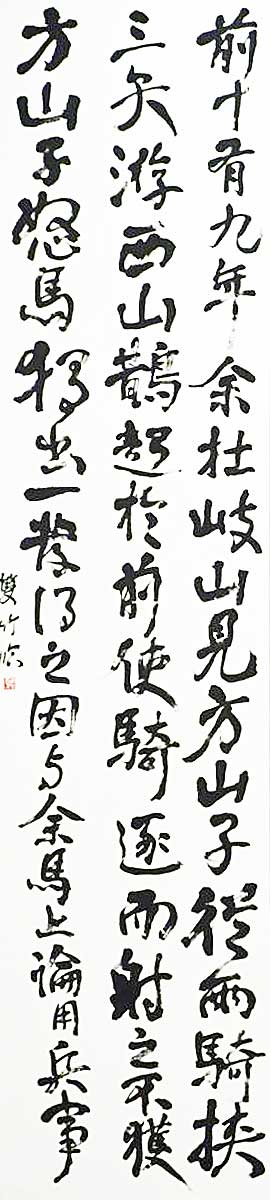 前十有九年余在岐山見方山子從兩騎挾
三矢游西山鵲起於前使騎逐而射之不獲
方山子怒馬獨出一發得之因与余馬上論用兵事
雙竹